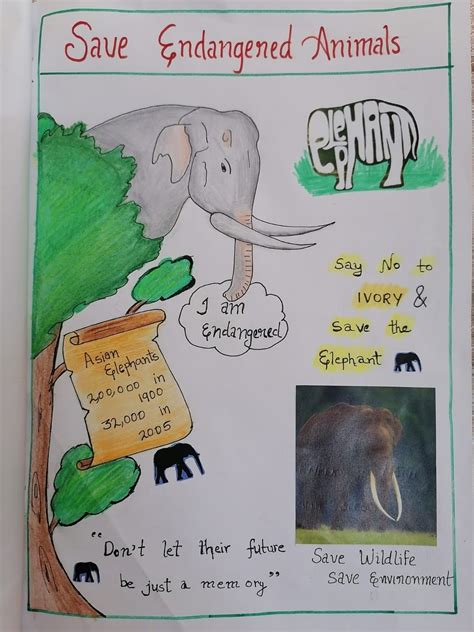 Save Endangered Animals
ELEPHANT
Say No to
IVORY &
Save the
Elephant
I am
Endangered
Asian
Elephants
200,000 in
1900
32,000 in
2005
"Don't let their future
be just a memory"
Save Wildlife
Save Environment